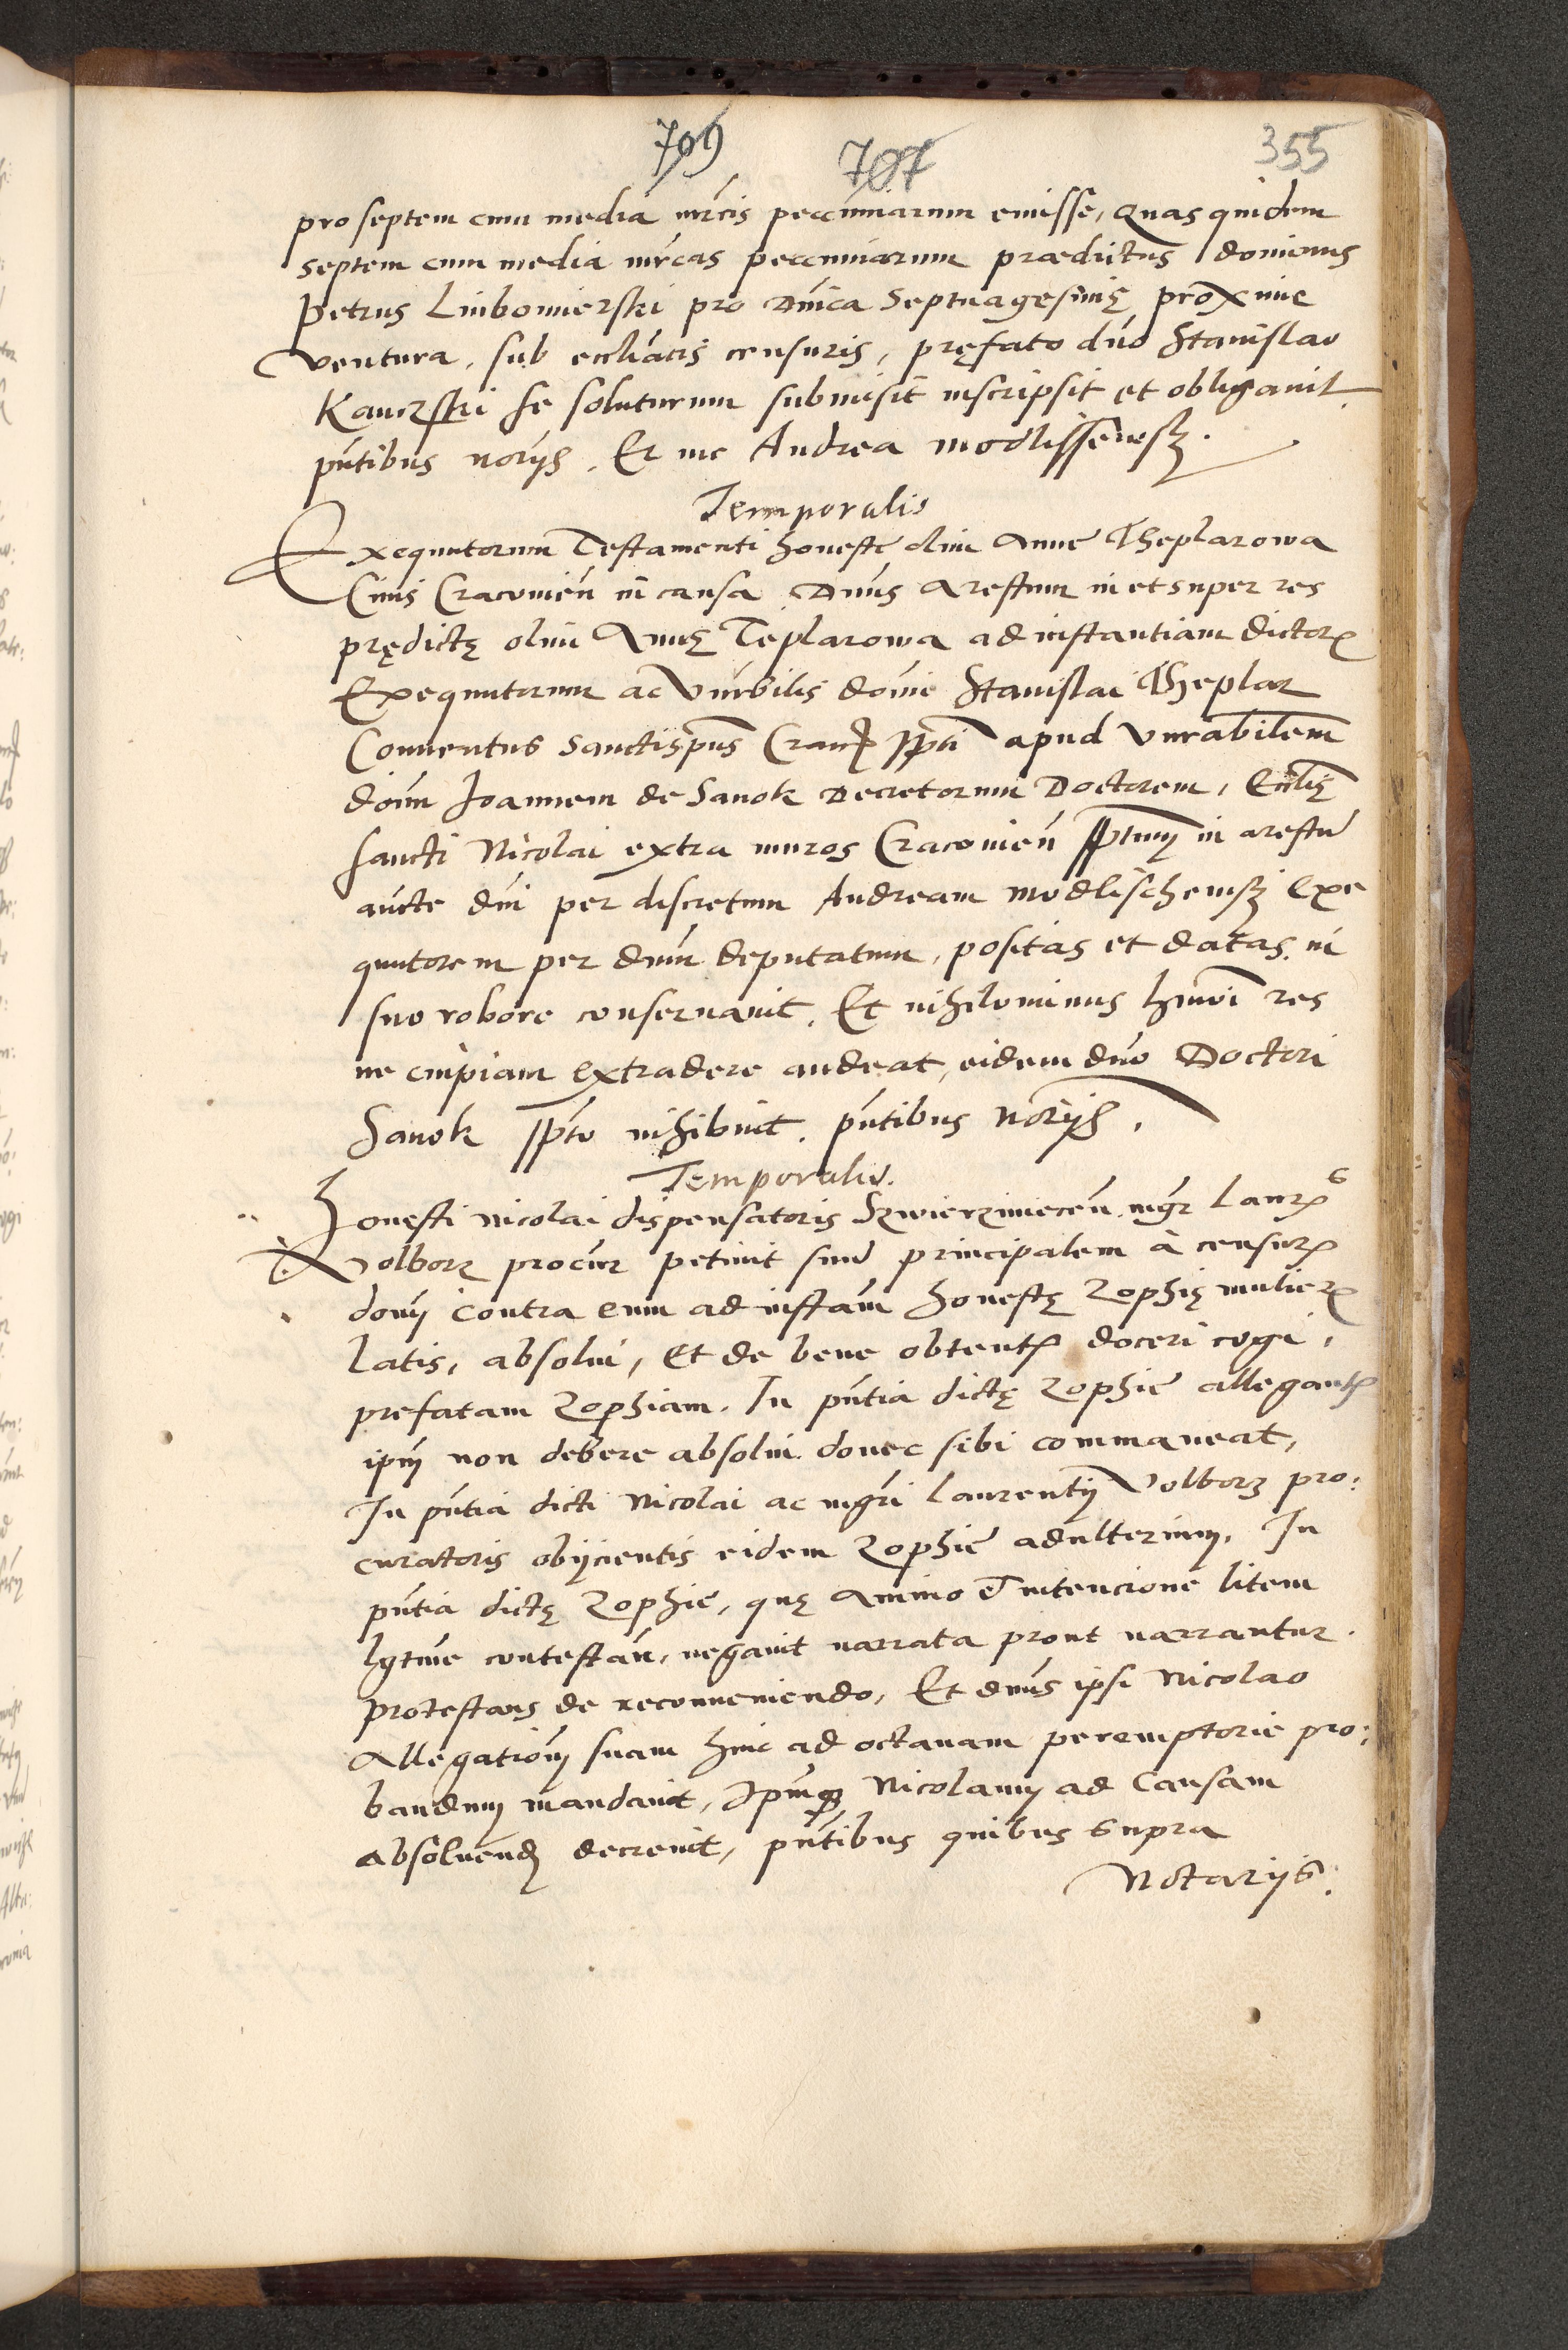 709 707 355
pro septem cum media mrcis peccuniarum emisse, Quas quidem
septem cum media mrcas peccuniarum praedictus dominus
Petrus Liubomierski pro Dnica Septuagesimę proxime
ventura, sub eccliacis censuris, pręfato dno Stanislao
Kanczski se soluturum submisit inscripsit et obligauit
pntibus norijs. Et me Andrea modlissewsz.
Temporalis
Exequutorum Testamenti honeste olim Anne Theplarowa
Ciuis Cracouien in causa Dnus Arestum in et super res
prędictę olim Annę Teplarowa ad instantiam dictor
Exequutorum ac Vnrbilis domi Stanislai Theplar
Conuentus Sanctispus apud Vnrabilem
doim Joannem de Sanok Decretorum Doctorem,
sancti Nicolai extra muros Cracouien in arestu
aucte dni per discretum Andream modlischewsz Exe
quutorem per dnm deputatum, positas et datas in
suo robore conseruauit. Et nihilominus hmoi res
ne cuipiam extradere audeat, eidem dno Doctori
Sanok ppto inhibuit. pntibus norijs.
Temporalis.
Honesti Nicolai dispensatoris Szwierzinecen mgr Laur
Volborz procur petiuit suu principalem à censur
domi contra eum ad instam honestę Zophię mulier
latis, absolui, et de bene obtent doceri cogi,
prefatam Zophiam. In pntia dictę Zophie allegant
ipm non debere absolui donec sibi commaneat,
In pntia dicti Nicolai ac mgri Laurentij Volborz pro:
curatoris obijcientis eidem Zophie adulterium, In
pntia dictę Zophie, quę Animo et intencione litem
lgtme contestan, negauit narrata prout narrantur.
protestans de reconueniendo, Et dnus ipsi Nicolao
Allegationem suam hinc ad octauam peremptorie pro:
bandum mandauit, Ipmq Nicolaum ad Causam
absoluend decreuit, pntibus quibus supra
Notarijs.